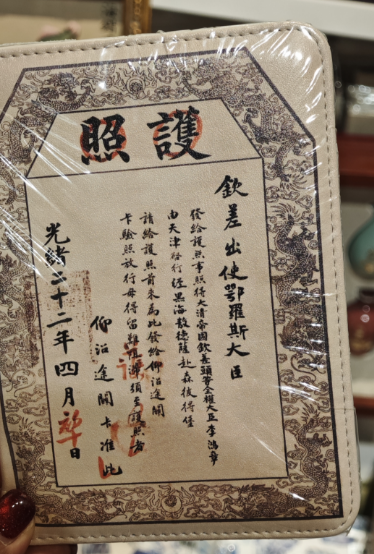 護照
欽差出使鄂羅斯大臣
發給護照事照得大清帝國欽差頭等全權大臣李鴻章
由天津啓行經黑海敖德薩赴森彼得堡
請給護照前來為此發給仰沿途關
卡驗照放行毋得留難阻滯須至護照者
仰沿途關卡准此
光緒二十二年四月 日